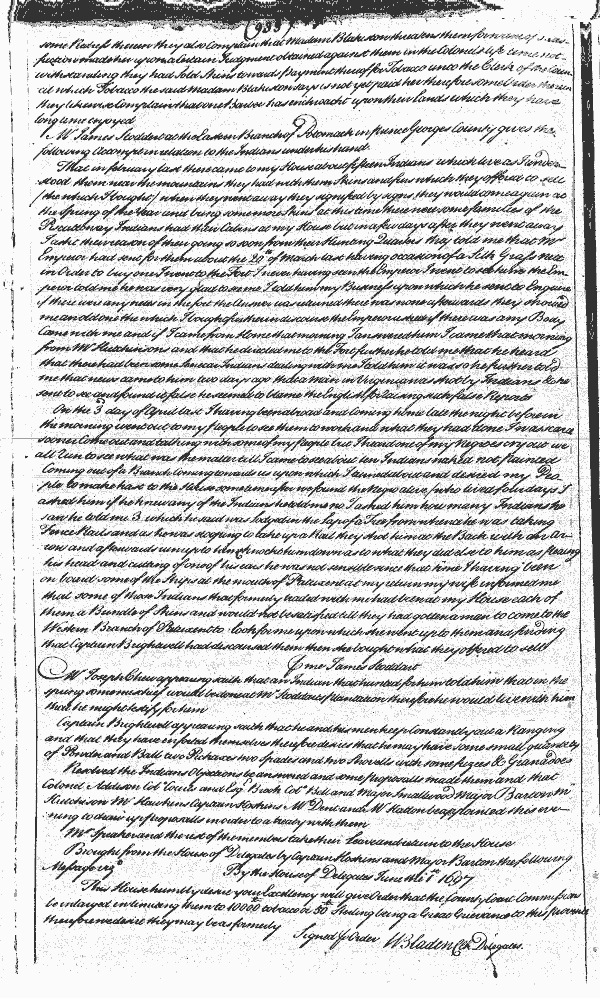 (933)
some Relief therein they also Complain that Madam Blakiston threatens them for want of Satis-
faction made her upon a Certain Judgment obtained against them in the Colonels life time not-
withstanding they had sold Skins towards payment thereof for Tobacco unto the Clerk of the Coun
cil which Tobacco the said Madam Blakiston says is not yet paid her therefore some Order therein
they likewise Complain that one Barbar has inchroacht upon their Lands which they have
long time enjoyed
Mr James Stoddert at the Eastern Branch of Potomack in prince Georges County gives the
following Accompt in relation to the Indians under his hand
That in february last there came to my House about fifteen Indians which live as I under-
stood them near the mountains they had with them Skins and furs which they offered to sell
(the which I bought) when they went away they signifyed by signs they would come again at
the Spring of the Year and bring some more Skins at this time there were some families of the
Piscattoway Indians had their Cabins at my House but in a few days after they went away
I askt the reason of their going so soon from their Hunting Quarters they told me that the
Emperor had sent for them about the 20th of March last having occasion of a Silk Grass net
in Order to buy one I went to the Fort I never having seen the Emperor I went to see him the Em-
peror told me he was very glad to see me I told him my Business upon which he sent to Enquire
if there were any new in the fort the Answer was returned there was none afterwards they showed
me an old one the which I bought further in discourse the Emperor askt if there was any Body
Came with me and if I came from Home that morning I answered him I came that morning
from Mr Hutchinsons and that he directed me to the Fort further he told me that he heard
that there had been some Senecar Indians dealing with me I told him it was so he further told
me that news came to him two days ago that a man in Virginia was shot by Indians he has
sent to see and found it false he seemed to blame the English for raising such false Reports
On the 3 day of April last I having been abroad and Coming home late the night before in
the morning went out to my people to see them to work and what they had done I was scarce
sooner Come out and talking with some of my people but I heard one of my Negroes cry out we
all run to see what was the matter till I came to see about ten Indians naked and painted
Coming out of a Branch coming towards us upon which I turned about and desired my Peo
ple to make hast to the House some time after we found the Negro alive (who lived four days) I
asked him if he knew any of the Indians he told me no I asked him how many Indians he
saw he told me 3 which he said was lodged in the Lap of a Tree from whence he was taking
Fence Rails and as he was stooping to take up a Rail they shot him at the Back with an Ar-
row and afterwards run up to him & knocks him down as to what they did else to him as fleaing
his head and cutting of one of his ears he was not sensible since that time I having been
on board some of the Ships at the mouth of Patuxent at my return my wife informed me
that some of those Indians that formerly traded with me had been at my House each of
them a Bundle of Skins and would not be satisfied till they had gotten a man to come to the
Western Branch of Patuxent to look for me upon which she went up to them and finding
that Captain Brightwell had discoursed them then she bought what they offered to sell
⅌ me James Stoddart
Mr Joseph Chew appearing saith that an Indian that hunted for him told him that in the
spring some mischief would be done at Mr Stodderts plantation therefore he would live with him
that he might testify for him
Captain Brightwell appearing saith that he and his men keep Constandly out a Ranging
and that they have enforted themselves therefore desires that he may have some small quantity
of Powder and Ball two Pickaxes two Spades and two Shovels with some fuzes & Granadoes
Resolved the Indians Objections be answered and some proposalls made them and that
Colonel Addison Col Courts and Esq Brook Col Ball and Major Smallwood Major Barton Mr
Hutchison Mr Hawkins Captain Hoskins Mr Dent and Mr Hatton be appointed this eve-
ning to draw up proposalls in order to a treaty with them
Mr Speaker and the rest of the members take their leave and return to the House
Brought from the House of Delegates by Captain Hoskins and Major Barton the following
Message vizt By the House of Delegates June the 1st 1697
This House humbly desire your Excellency will give Order that the County Court Commission
be enlarged in limitting them to 10000 tobacco or 50 Sterling being a Great Grievance to this province
therefore we desire they may be as formerly
Signed ⅌ Order WBladen Clk Delegates.